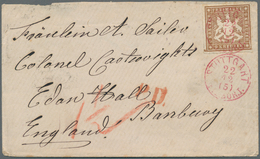 Fräulein A. Sailer
Colonel Cartwrights
Edon Hall
Banbury
England
P.D.
STUTTGART
22